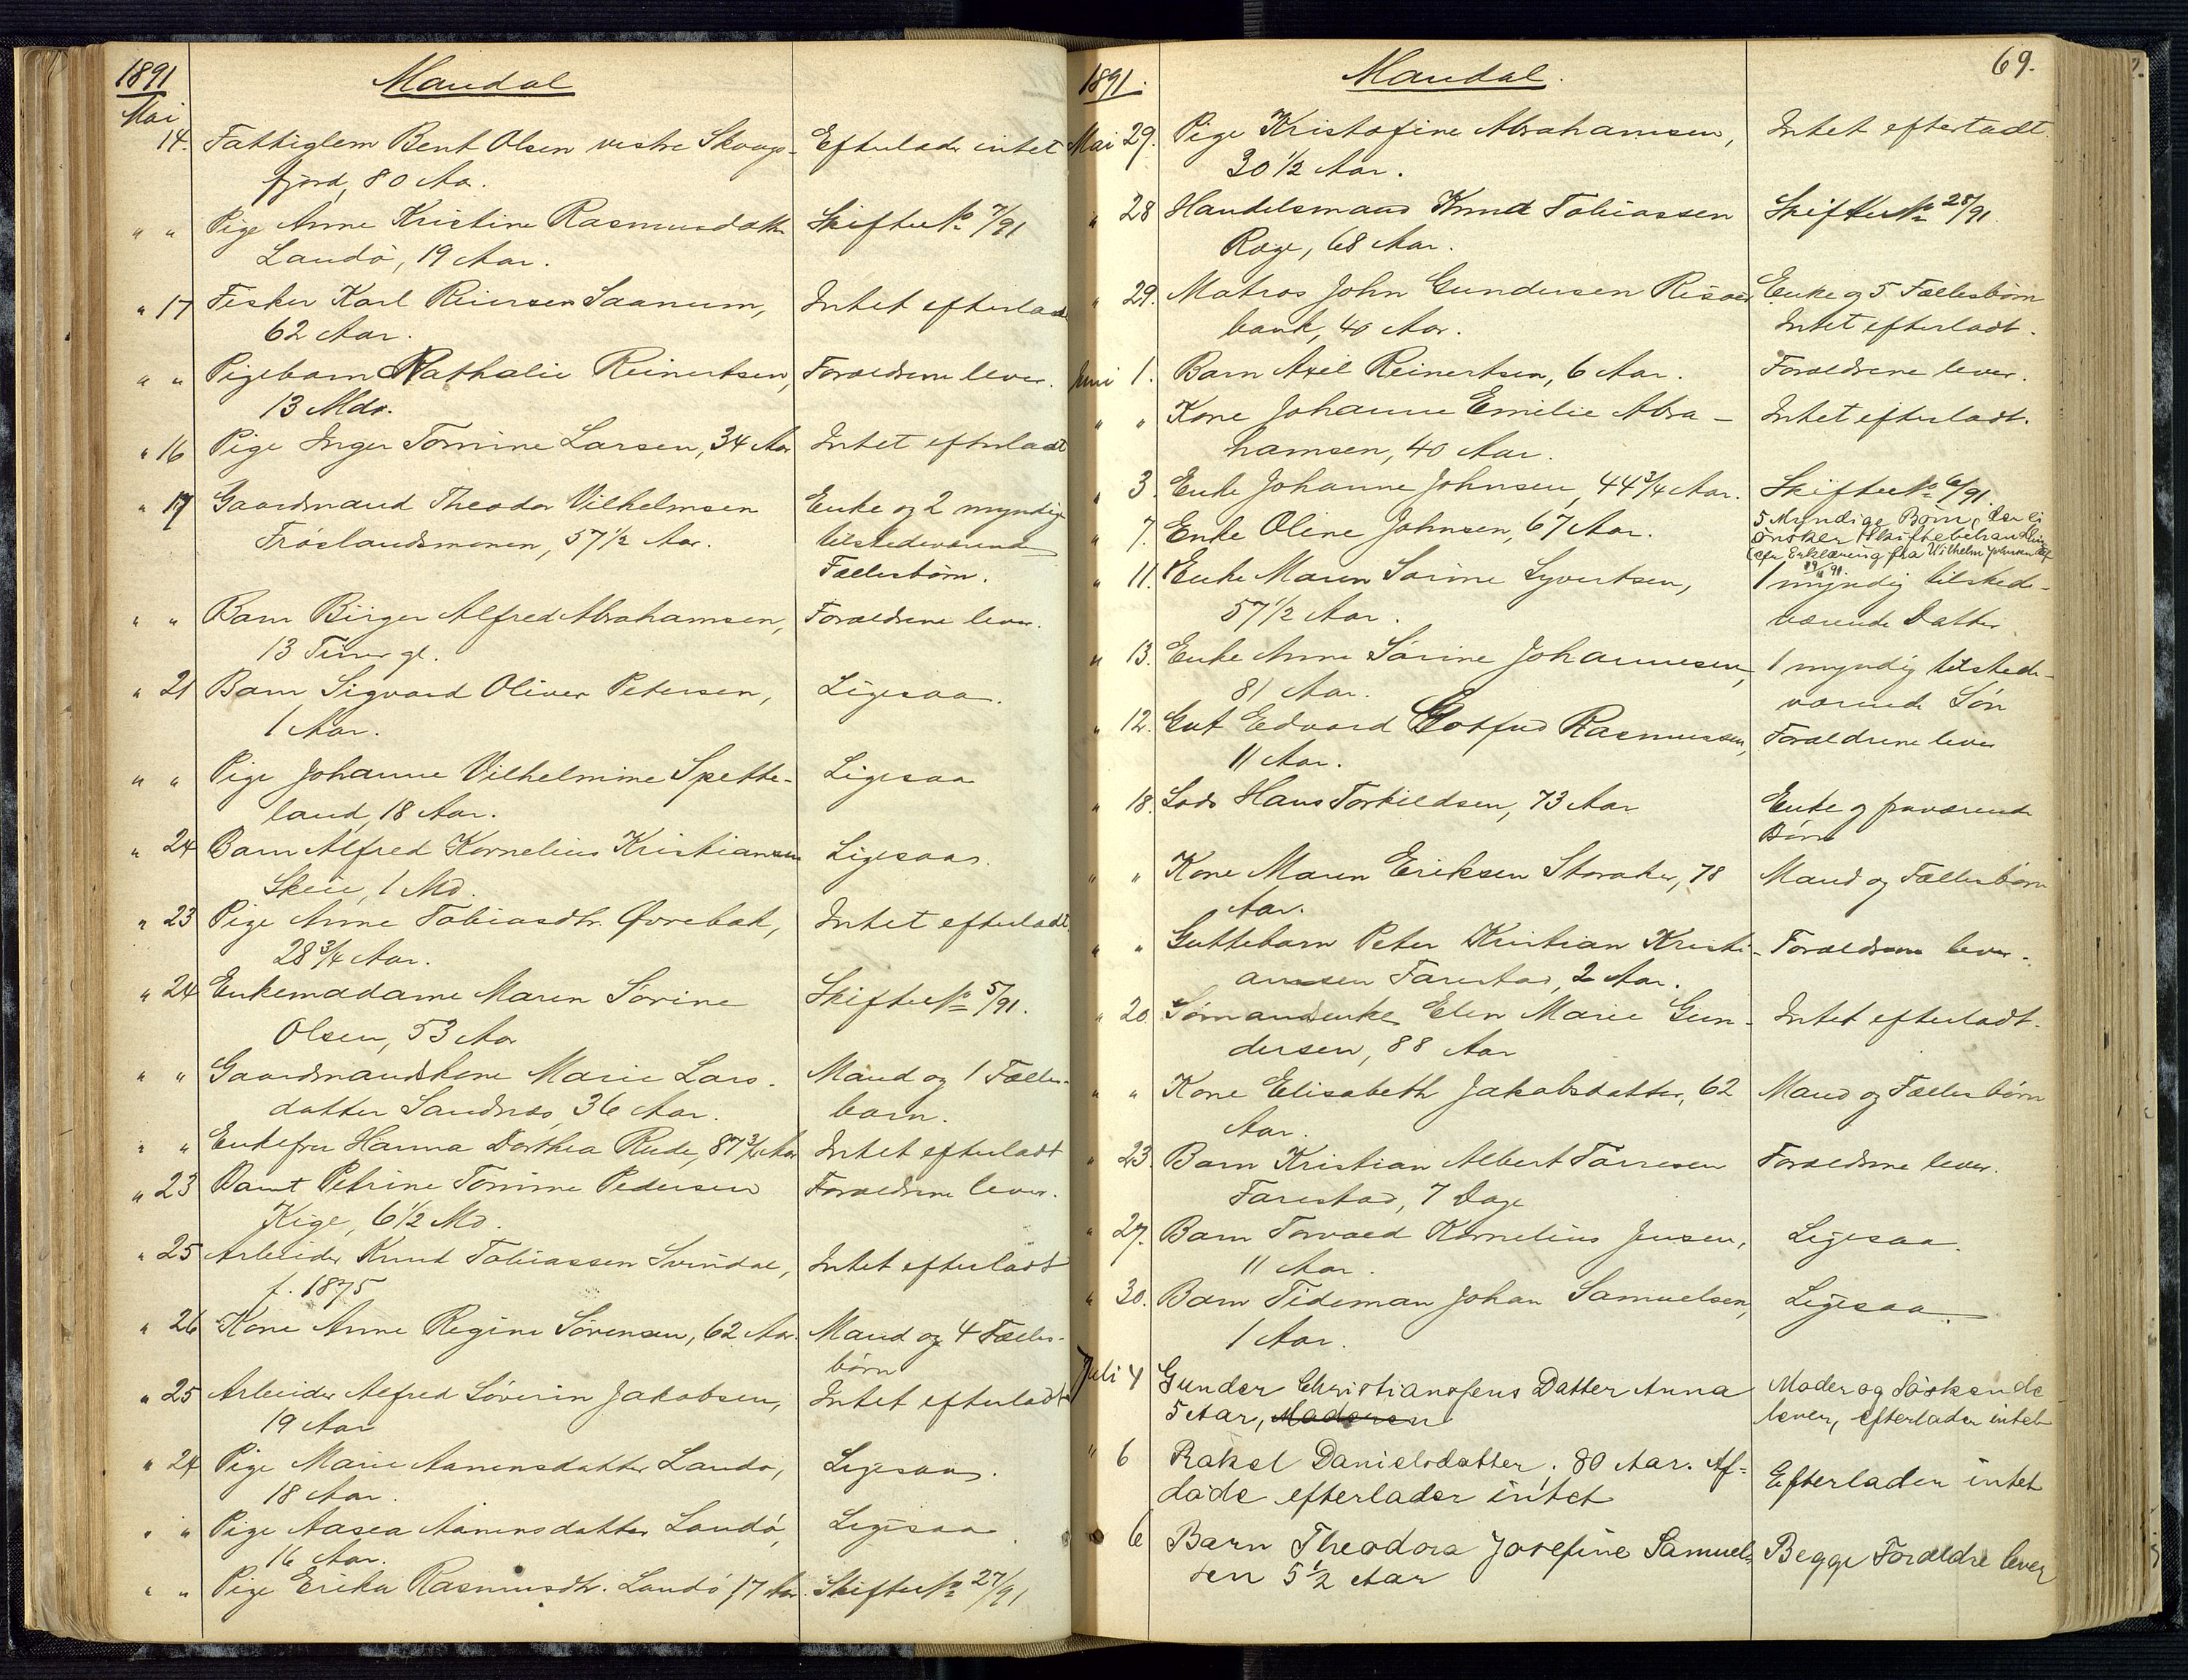 1891
Mandal
Mai
14. Fattiglem Bent Olsen vestre Skoogs- Efterlader intet
fjord, 80 Aa.
" " Pige Anne Kristine Rasmusdatter Skifte No 7/91
Landö, 19 Aar.
" 17 Fisker Karl Reiersen Saanum, Intet efterladt
62 Aar.
" " Pigebarn Nathalie Reinertsen, Forældrene lever.
13 Mdr.
" 16 Pige Inger Tomine Larsen, 34 Aar Intet efterladt
" 17 Gaardmand Theodor Vilhelmsen Enke og 2 myndige
Fröslandsmonen, 57 1/2 Aar. tilstedeværende
Fællesbörn.
" " Barn Birger Alfred Abrahamsen, Forældrene lever.
13 Timer gl.
" 21 Barn Sigvard Oliver Petersen, Ligesaa.
1 Aar.
" " Pige Johanne Vilhelmine Spette- Ligesaa
land, 18 Aar.
" 24 Barn Alfred Kornelius Kristiansen Ligesaa.
Skeie, 1 Md.
" 23 Pige Anne Tobiasdtr. Øvrebøk, Intet efterladt
28 3/4 Aar.
" 24 Enkemadame Maren Sörine Skifte No 5/91.
Olsen, 53 Aar
" " Gaardmandskone Marie Lars- Mand og 1 Fælles-
datter Sandnæs, 36 Aar. barn.
" " Enkefru Hanna Dorthea Rude, 87 3/4 Aar Intet efterladt
" 23 Barnet Petrine Tomine Pedersen Forældrene lever.
Kige, 6 1/2 Md.
" 25 Arbeider Knud Tobiassen Svindal, Intet efterladt
f. 1875
" 26 Kone Anne Regine Sörensen, 62 Aar. Mand og 4 Fælles-
börn
" 25 Arbeider Alfred Söverin Jakobsen, Intet efterladt
19 Aar
" 24 Pige Marie Aanensdatter Landö, Ligesaa.
18 Aar.
" " Pige Aasea Aanensdatter Landö, Ligesaa
16 Aar.
" " Pige Erika Rasmusdtr. Landö 17 Aar. Skifte No 27/91
1891.
Mandal.
69.
Mai 29. Pige Kristofine Abrahamsen, Intet efterladt.
30 1/2 Aar.
" 28 Handelsmand Knud Tobiassen Skifte No 28/91.
Røge, 68 Aar.
" 29. Matros John Gundersen Risøe- Enke og 5 Fællesbörn
bank, 40 Aar. Intet efterladt.
Juni 1. Barn Axel Reinertsen, 6 Aar. Forældrene lever.
" " Kone Johanne Emilie Abra- Intet efterladt.
hamsen, 40 Aar.
" 3. Enke Johanne Johnsen, 44 3/4 Aar. Skifte No 6/91.
" 7. Enke Oline Johnsen, 67 Aar. 5 Myndige Börn, der ei
önsker Skiftebehandling
(cfr Erklæring fra Vilhelm Johnsen
" 11. Enke Maren Sörine Syvertsen, 1 myndig tilstede-
57 1/2 Aar. værende Datter
" 13. Enke Anne Sörine Johannesen, 1 myndig tilstede-
81 Aar. værende Sön
" 12. Gut Edvard Gotfred Rasmussen, Forældrene lever
11 Aar.
" 18. Lods Hans Torkildsen, 73 Aar Enke og fraværende
Börn
" " Kone Maren Eriksen Storaker, 78 Mand og Fællesbörn
Aar.
" " Guttebarn Peter Kristian Kristi- Forældrene lever.
anssen Farestad, 2 Aar.
" 20. Sömandsenke Elen Marie Gun- Intet efterladt.
dersen, 88 Aar
" " Kone Elisabeth Jakobsdatter, 62 Mand og Fællesbörn
Aar.
" 23. Barn Kristian Albert Tørresen Forældrene lever.
Farestad, 7 Dage
" 27. Barn Torvald Kornelius Jensen, Ligesaa.
11 Aar.
" 30. Barn Tideman Johan Samuelsen, Ligesaa.
1 Aar.
Juli 4 Gunder Christiansens Datter Anna Moder og Söskende
5 Aar, Moderen lever, efterlader intet
" 6 Rakel Danielsdatter, 80 Aar. Af- Efterlader intet
døde efterlader intet
6 Barn Theodora Josefine Samuel- Begge Forældre lever
sen 5 1/2 Aar